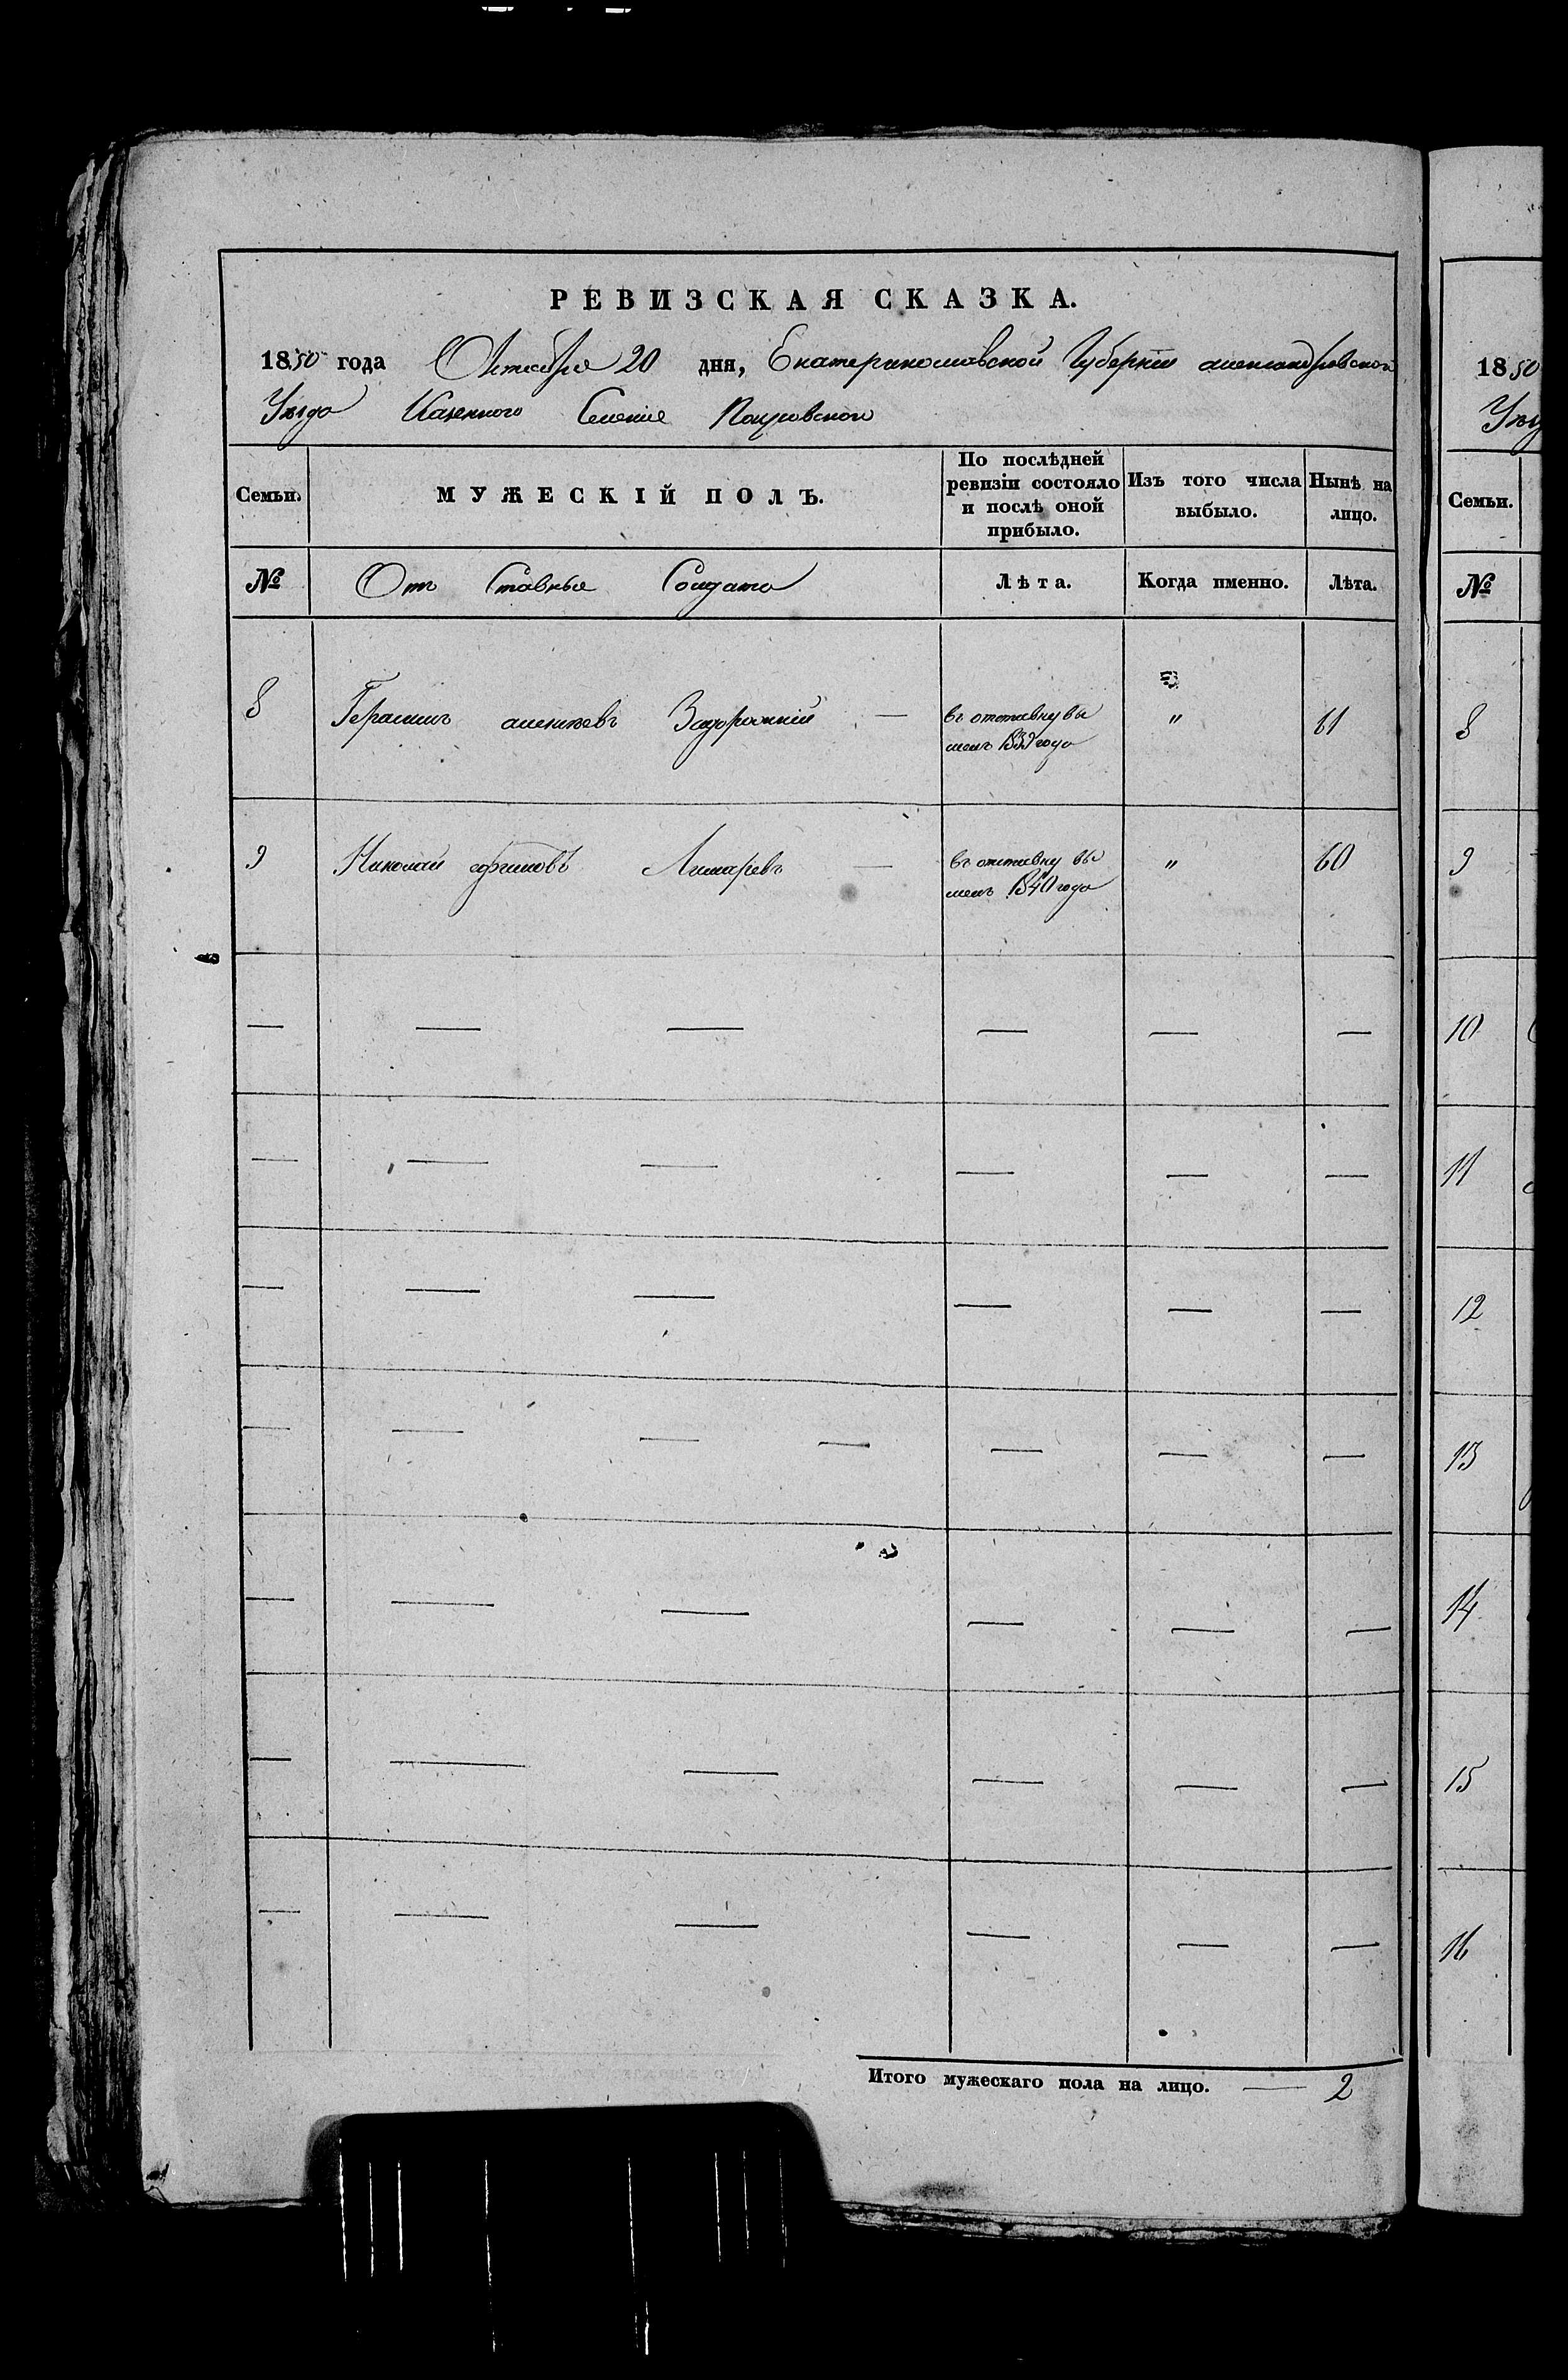 РЕВИЗСКАЯ СКАЗКА.
1850 года Октября 20 дня, Екатеринославской Губернiи александровской
Уезда Казенного Селенiе Покровского
Семьи.
МУЖЕСКІЙ ПОЛЪ.
По послѣдней ревизіи состояло и послѣ оной прибыло.
Изъ того числа выбыло.
Нынѣ на лицо.
№
Отъ Ставные Солдаты
Лѣта.
Когда именно.
Лѣта.
8 Герасимъ алексѣевъ Задорожнiй — въ отставку вы " 61
шелъ 1839 года
9 Николай ефимовъ Лимаревъ — въ отставку вы " 60
шелъ 1840 года
Итого мужескаго пола на лицо. — 2
1850
Уез
Семьи.
№
8
9
10
11
12
13
14
15
16